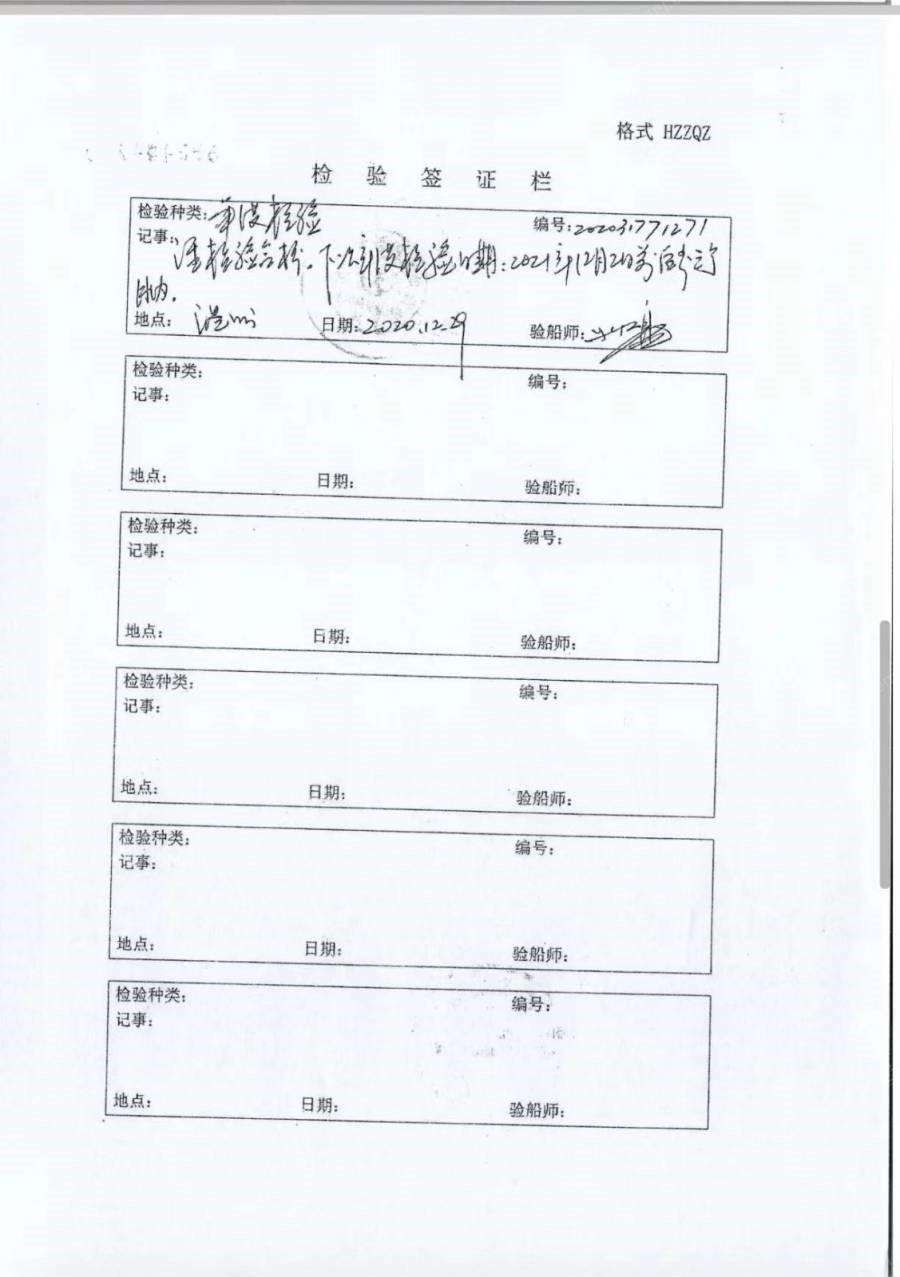 格式 HZZQZ
检 验 签 证 栏
检验种类: 年度检验 编号:202031771271
记事:
经检验合格。下次年度检验日期:2021年12月2日前后
日内。
地点: 温州 日期:2020.12.29 验船师:
检验种类: 编号:
记事:
地点: 日期: 验船师:
检验种类: 编号:
记事:
地点: 日期: 验船师:
检验种类: 编号:
记事:
地点: 日期: 验船师:
检验种类: 编号:
记事:
地点: 日期: 验船师:
检验种类: 编号:
记事:
地点: 日期: 验船师: